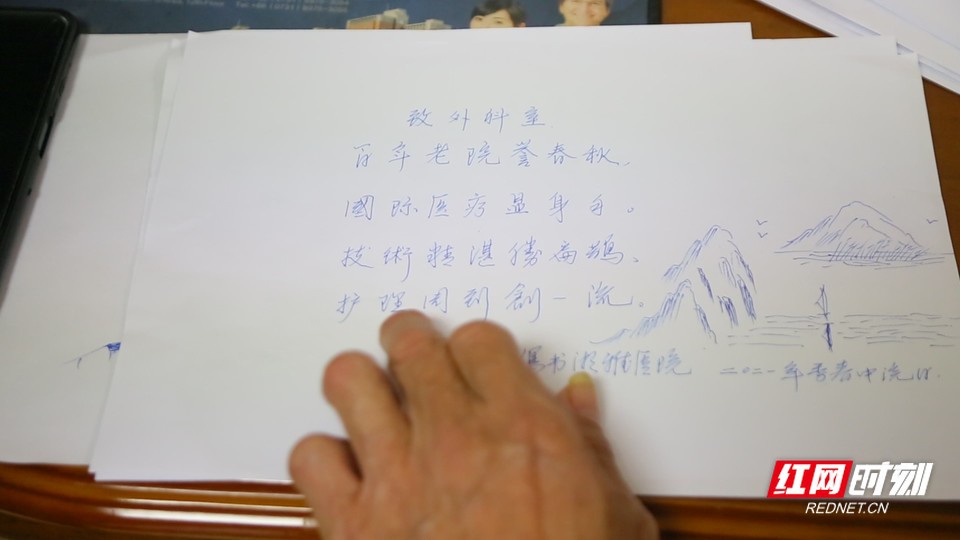 致外科室
百年老院誉春秋.
國际医疗显身手。
技術精湛勝扁鹊、
护理周到創一流。
书湘雅医院 二〇二一年
红网时刻
REDNET.CN